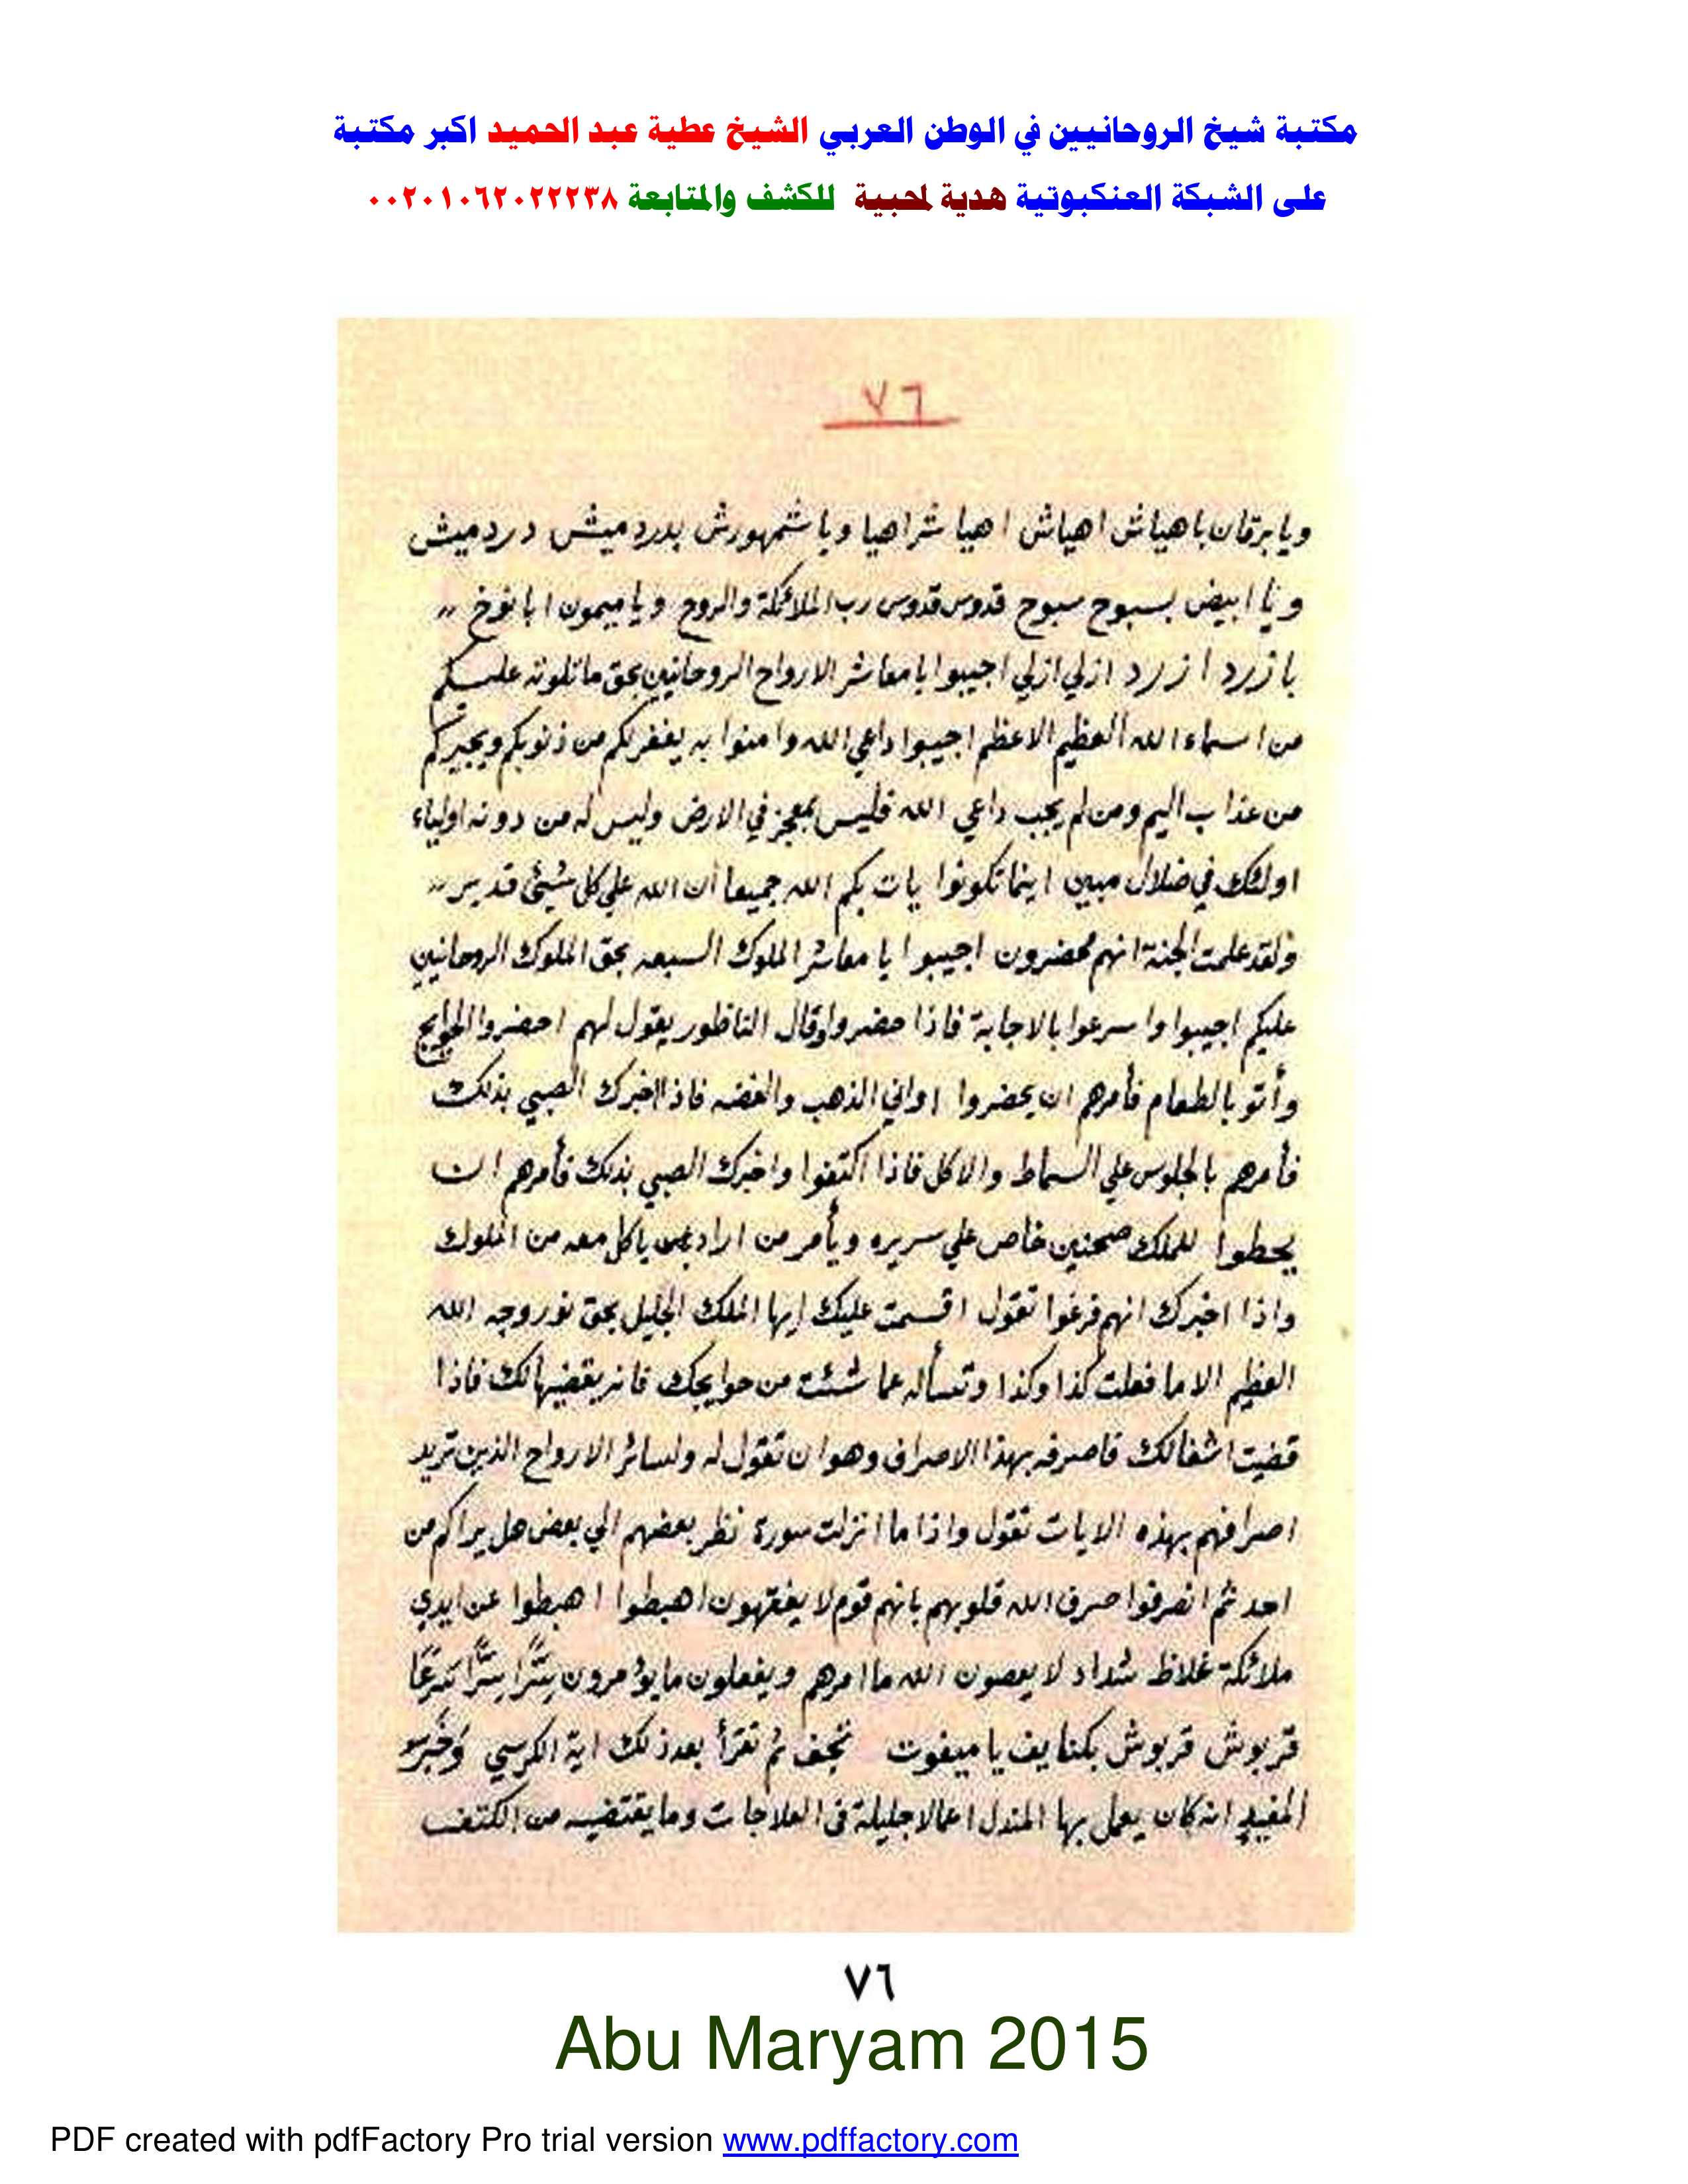 مكتبة شيخ الروحانيين في الوطن العربي الشيخ عطية عبد الحميد اكبر مكتبة
على الشبكة العنكبوتية هدية لمحبية للكشف والمتابعة ٠٠٢٠١٠٦٢٠٢٢٢٣٨
٧٦
ويا برقان باهياش اهياش اهيا شراهيا ويا شمهورش بدردميش دردميش
ويا ابيض بسبوح سبوح قدوس قدوس رب الملائكة والروح ويا ميمون ابا نوخ ,,
بازرد ازرد ازلي ازلي اجيبوا يا معاشر الارواح الروحانين بحق ما تلوته عليكم
من اسماء الله العظيم الاعظم اجيبوا داعي الله وامنوا به يغفر لكم من ذنوبكم ويجيركم
من عذاب اليم ومن لم يجب داعي الله فليس بمعجز في الارض وليس له من دونه اولياء
اولئك في ضلال مبين اينما تكونوا يات بكم الله جميعا ان الله علي كل شيئ قدير ,,
ولقد علمت الجنة انهم محضرون اجيبوا يا معاشر الملوك السبعه بحق الملوك الروحانين
عليكم اجيبوا واسرعوا بالاجابة فاذا حضروا وقال الناظور يقول لهم احضروا
وأتو بالطعام فأمرهم ان يحضروا اواني الذهب والفضه فاذا اخبرك الصبي بذلك
فأمرهم بالجلوس علي السماط والاكل فاذا اكتفوا واخبرك الصبي بذلك فأمرهم ان
يحطوا للملك صحنين خاص علي سريره ويأمر من اراد ياكل معه من الملوك
واذا اخبرك انهم فرغوا تقول اقسمت عليك ايها الملك الجليل بحق نور وجه الله
العظيم الا ما فعلت كذا وكذا وتسأله عما شئت من حوايجك فانه يقضيها لك فاذا
قضيت اشغالك فاصرفه بهذا الاصراف وهو ان تقول له ولسائر الارواح الذين تريد
اصرافهم بهذه الايات تقول واذا ما انزلت سورة نظر بعضهم الي بعض هل يراكم من
احد ثم انصرفوا صرف الله قلوبهم بانهم قوم لا يفقهون اهبطوا اهبطوا عن ايدي
ملائكة غلاظ شداد لا يعصون الله ما امرهم ويفعلون ما يؤمرون
قربوش قربوش بكنايف يا ميغوت ثم تقرأ بعد ذلك اية الكرسي
المفيد انه كان يعمل بها المندل اعمالا جليلة في العلاجات وما يقتضيه من الكشف
٧٦
Abu Maryam 2015
PDF created with pdfFactory Pro trial version www.pdffactory.com